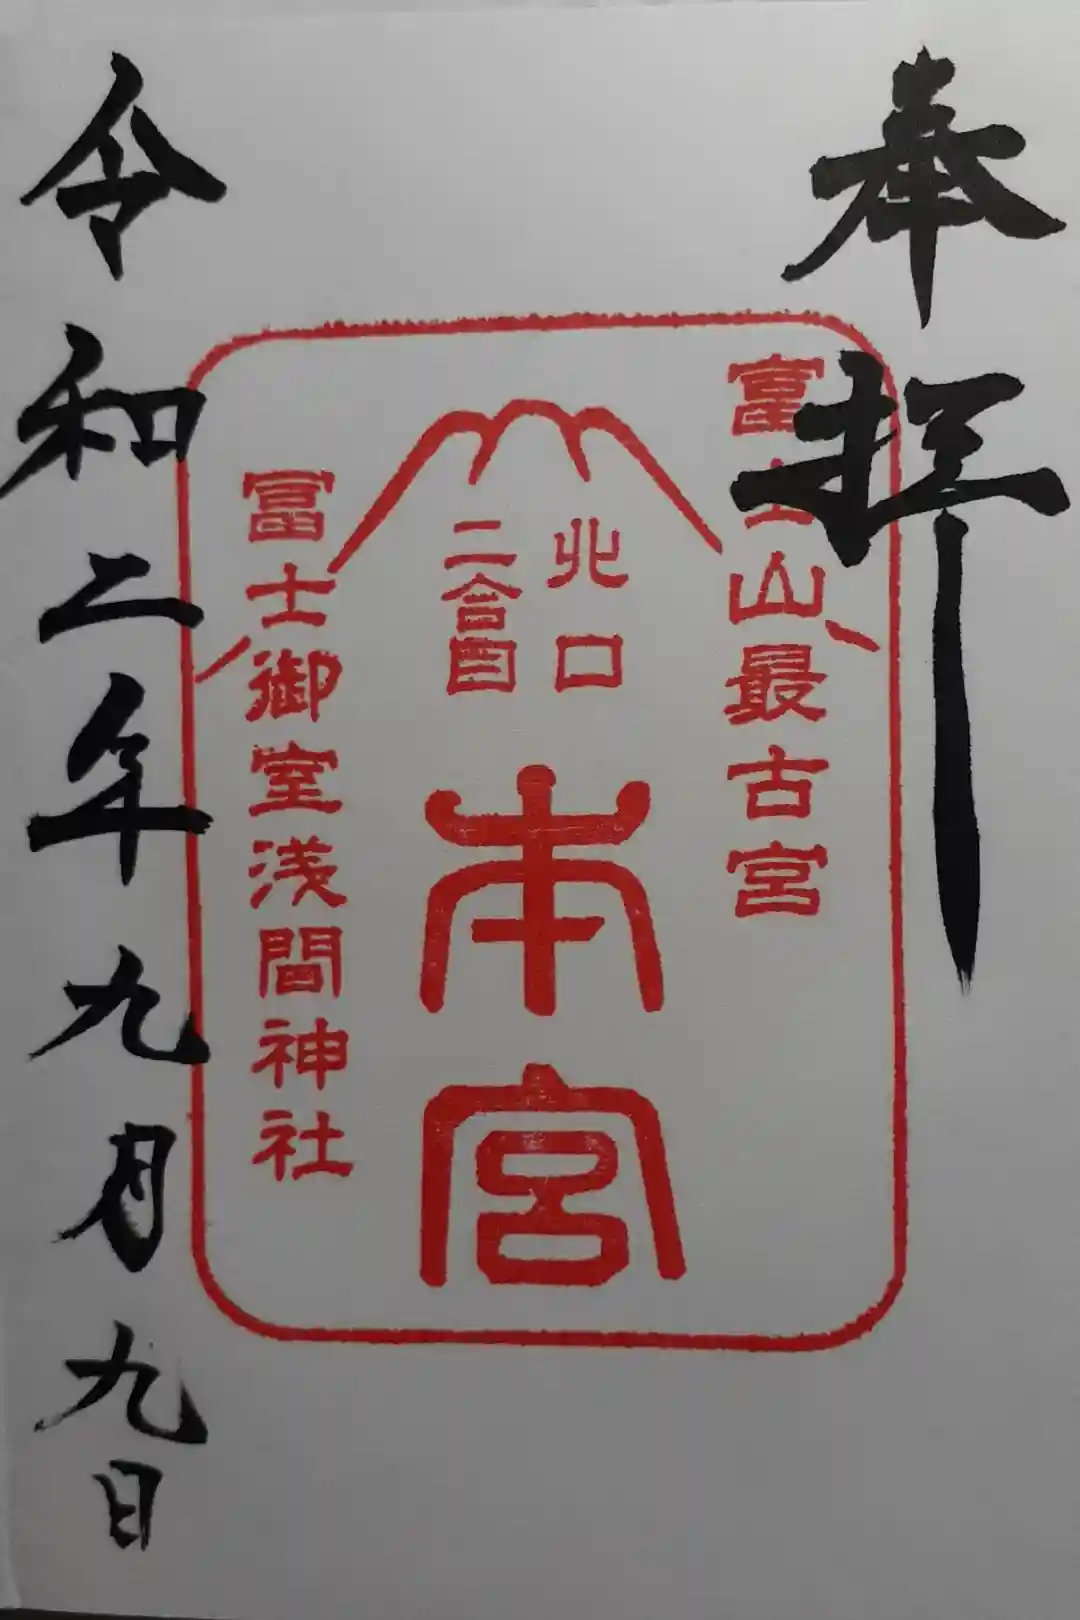 奉拝
富士山最古宮
北口
二合酉
本宮
富士御室浅間神社
令和二年九月九日